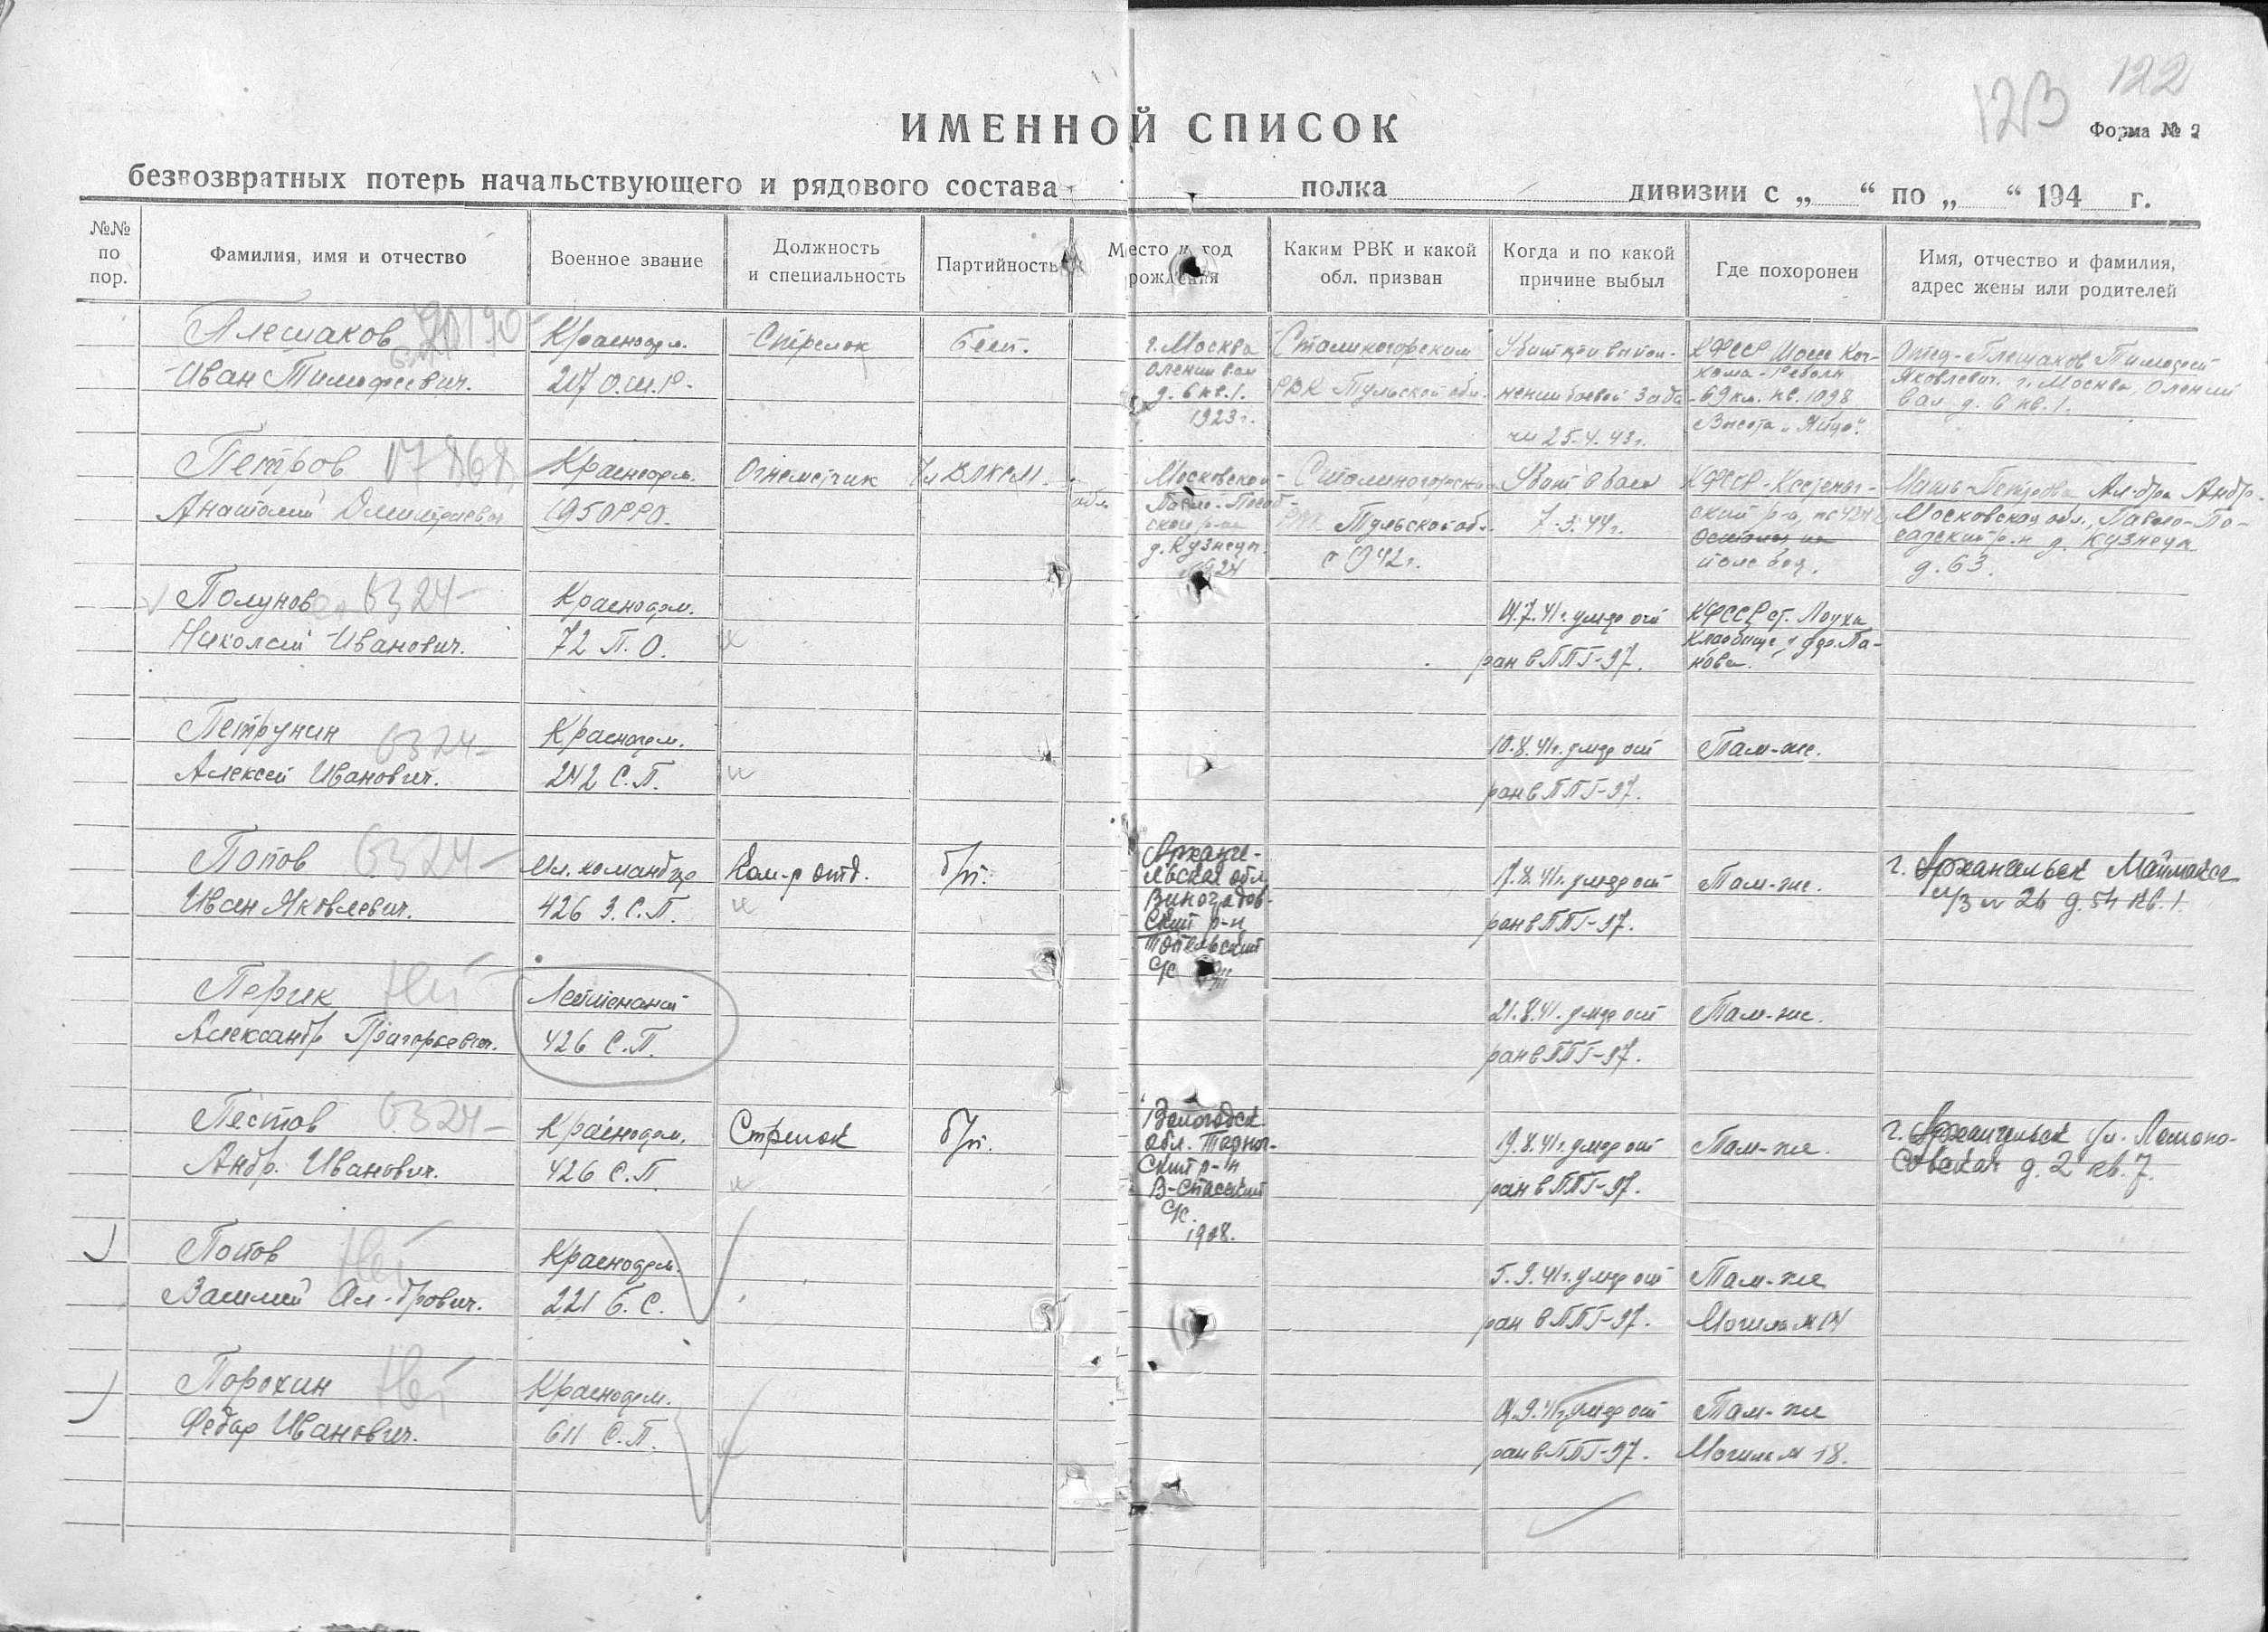 122
123
Форма № 2
ИМЕННОЙ СПИСОК
безвозвратных потерь начальствующего и рядового состава полка дивизии с „ “ по „ “ 194 г.
№№ по пор.
Фамилия, имя и отчество
Военное звание
Должность и специальность
Партийность
Место и год рождения
Каким РВК и какой обл. призван
Когда и по какой причине выбыл
Где похоронен
Имя, отчество и фамилия, адрес жены или родителей
Плешаков
Иван Тимофеевич.
Красноарм.
207 О.Ш.Р.
Стрелок
г. Москва
Олений вал
д. 6 кв. 1.
1923 г.
Сталиногорским
РВК Тульской обл.
Убит при выпол-
нении боевой зада
чи 25.4.43 г.
КФССР
69 км. кв. 1098
Высота „Яйцо".
Отец-Плешаков Тимофей
Яковлевич. г. Москва, Олений
Вал д. 6 кв. 1.
Петров 17868
Анатолий Дмитриевич
Красноарм.
Огнеметчик
Чл ВЛКСМ.
Московской
обл.
Павло-Посад-
ский р-н
д. Кузнецы
1924
Тульской обл.
с 1942 г.
Убит в бою
7.3.44 г.
КФССР
поле боя.
Мать-Петрова Ал-дра Андр.
Московская обл., Павлово-По-
садский р-н д. Кузнецы
д. 63.
Полунов 6324-
Николай Иванович.
Красноарм.
72 П. О.
умер от
ран в ППГ-97.
КФССР ст. Лоухи
Кладбище у дер. Па-
нова.
Петрунин 6324-
Алексей Иванович.
Красноарм.
242 С.П.
10.8.41г. умер от
ран в ППГ-97.
Там-же.
Попов 6324-
Иван Яковлевич.
Мл. командир
426 З.С.П.
Ком-р отд.
б/п.
Арханге-
льская обл
Виноградов-
ский р-н
с/с
17.8.41г. умер от
ран в ППГ-97.
Там-же.
г. Архангельск Маймакса
л/з № 26 д. 54 кв. 1.
Нет
Александр Григорьевич.
Лейтенант
426 С.П.
21.8.41. умер от
ран в ППГ-97.
Там-же.
Пестов 6324-
Андр. Иванович.
Красноарм.
426 С.П
Стрелок
б/п.
Вологодск.
обл. Тарног-
ский р-н
В-Спасский
с/с.
1908.
19.8.41г. умер от
ран в ППГ-97.
Там-же.
г. Архангельск ул. Ломоно-
совская д. 2 кв. 7.
Попов Нет
Василий Ал-дрович.
Красноарм.
221 Б.С.
5.9.41г. умер от
ран в ППГ-97.
Там-же
Могила №14
Порохин Нет
Федор Иванович.
Красноарм.
611 С.П.
умер от
ран в ППГ-97.
Там-же
Могила № 18.